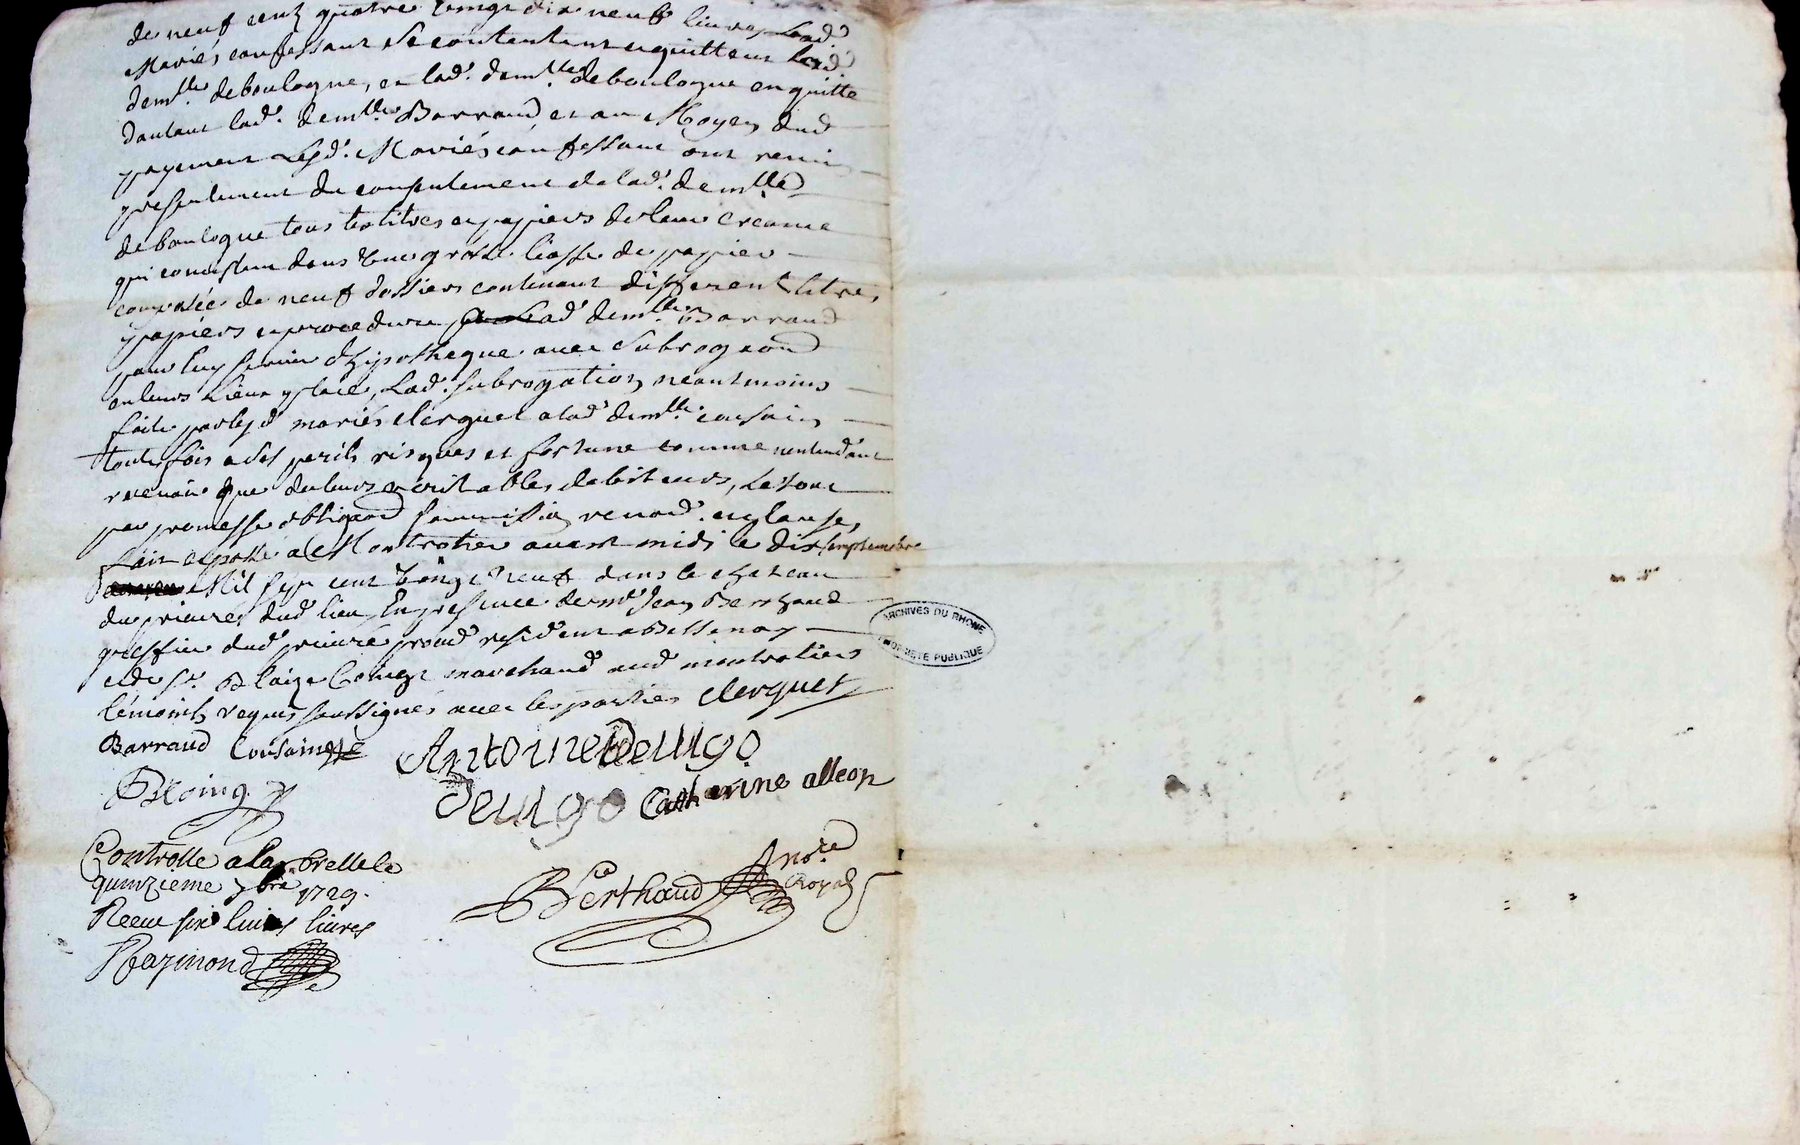 de neuf cent quatre vingt dix neuf livres Lesd
Mariés confessant se contentent enquittent lad
demlle deboulogne, et lad. demlle deboulogne enquitte
dautant lad. demlle Barraud et au Moyen dud
payement Lesd. Mariés confessant ont remis
presentement du consentement delad. demlle
deboulogne tous les titres et papiers deleur creance
qui consistent dans une grosse liasse de papier
composée de neuf dossiers contenant different titres,
papiers et procedure a Lad demlle Barraud
pour luy servir d'hipotheque avec subrogaon
enleurs Lieux place, Lad. subrogation neantmoins
faite parlesd mariés clerguet alad demlle cousain
toutefois a ses perils risques et fortune comme nentendant
revenir que deleurs veritables debiteurs, Le tout
par promesse obligaon soumission renonc. et clause,
fait et passé a Montrotier avant midi le dix septembre
Mil sept cent vingt neuf dans le chateau
du prieure dud lieu En presence de me Jean Berthaud
greffier dud prieuré prond resident a Bessenay
et de sr. Blaize Coingt marchand aud montrotiers
témoints requis soussignés avec les parties Clerguet
Barraud Cousain Antoine Deuigo
BCoing Deuigo Catherine alleon
Controlle a Larbrelle le
quinzieme 7bre 1729.
Receu six livres
Raymond
Berthaud nore Royal
ARCHIVES DU RHONE
PROPRIETE PUBLIQUE